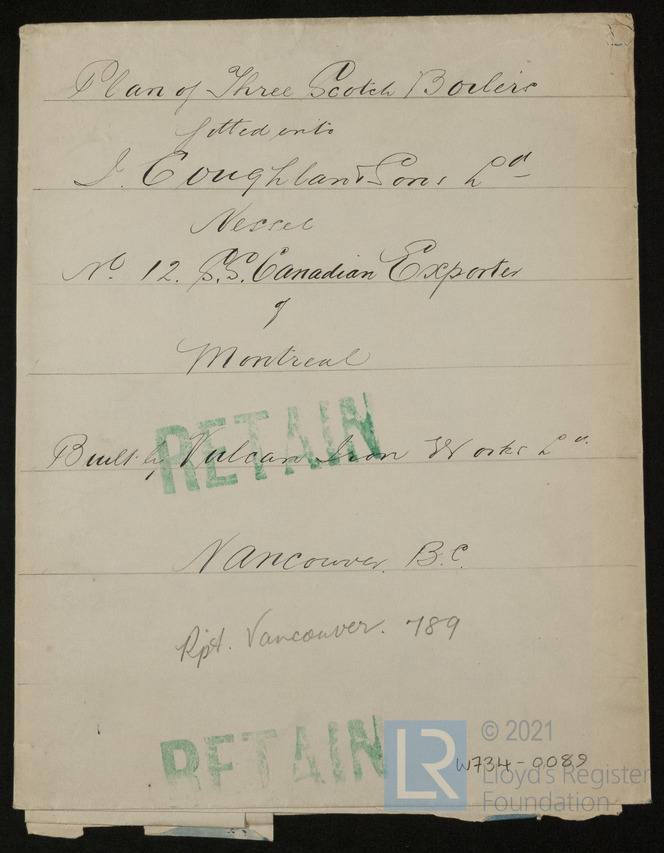 Plan of Three Scotch Boilers
fitted into
J. Coughlan & Sons Ld
Vessel
No. 12. S.S. Canadian Exporter
of
Montreal
RETAIN
Built by Vulcan Iron Works Ld.
Vancouver. B.C.
Rpt. Vancouver. 789
RETAIN
LR
© 2021
W734-0089
Lloyd's Register
Foundation